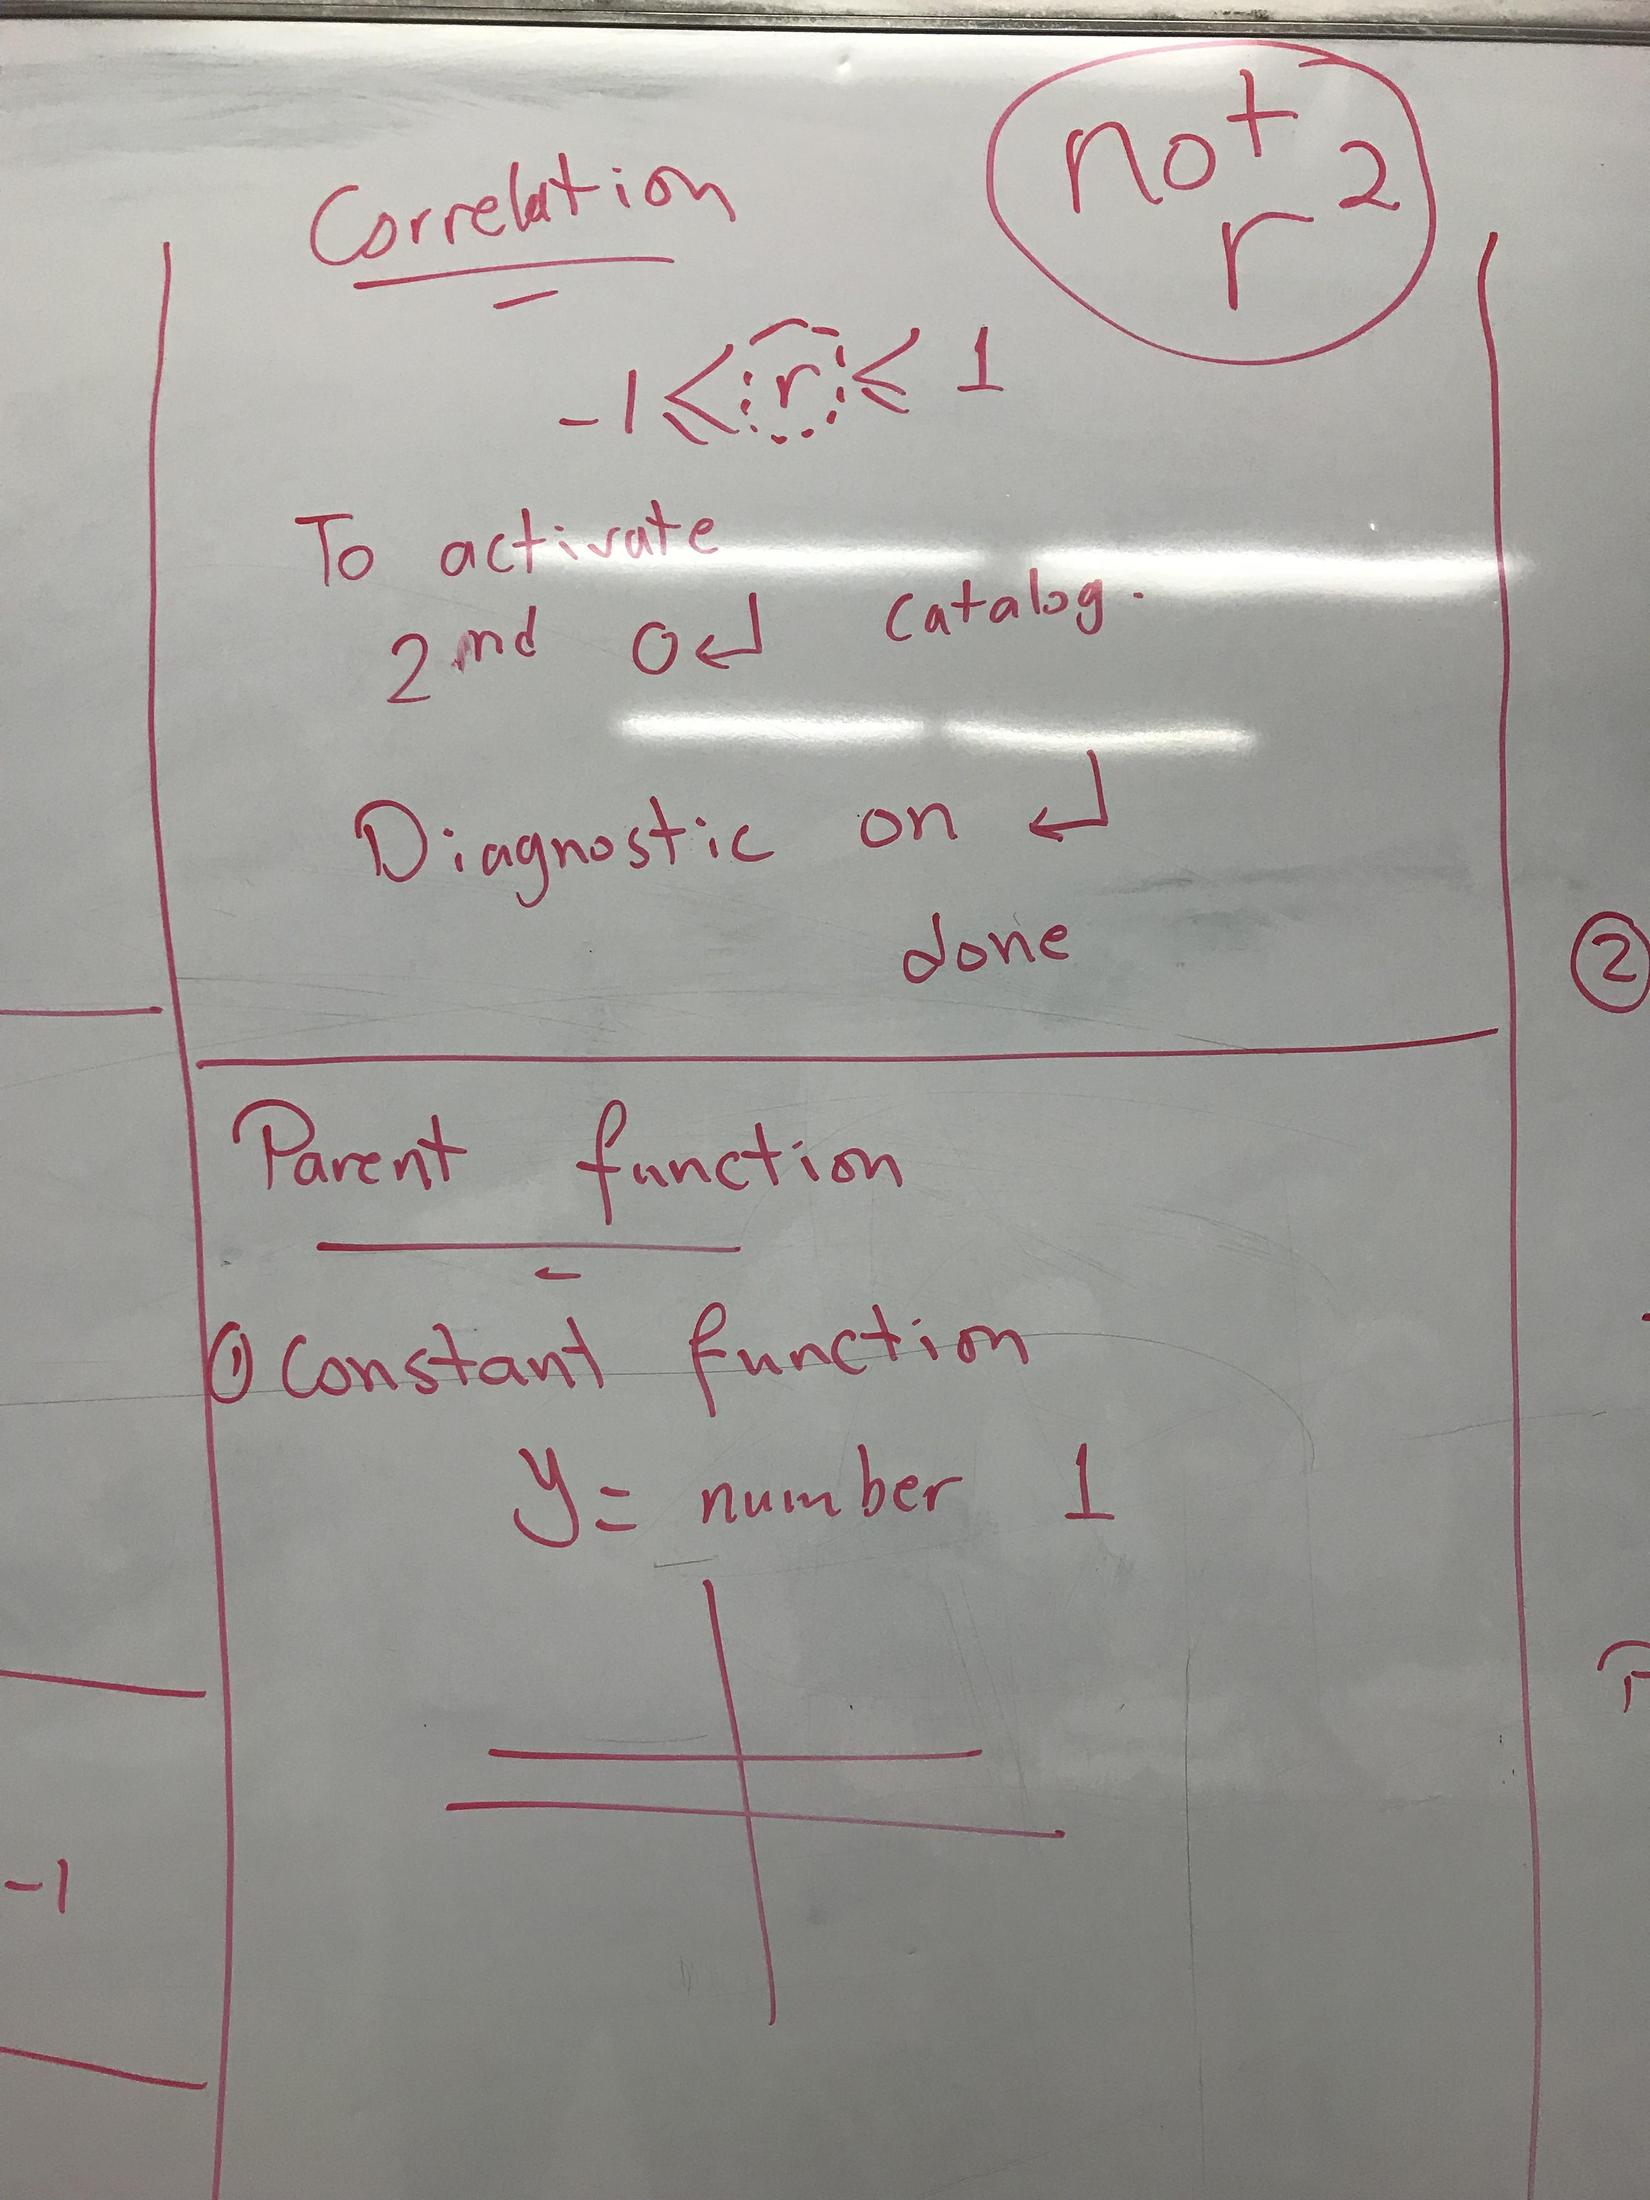 not
r²
Correlation
-1 ≤ r ≤ 1
To activate
2nd 0↵ catalog.
Diagnostic on ↵
done
②
Parent function
① Constant function
y = number 1
-1